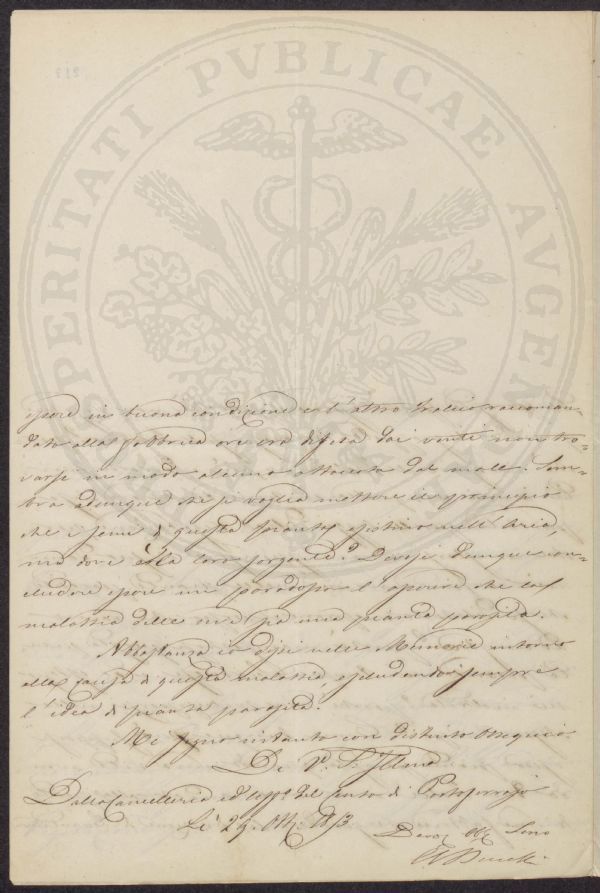 PROSPERITATI PVBLICAE AVGENDAE
essere in buona condizione e l'altro tralcio raccoman=
dato alla fabbrica ove era difesa dai venti non tro=
varsi in modo alcuno attaccata dal male. Sem=
bra adunque che si voglia mettere il principio
che i semi di questa pianta esistino nell'aria,
ma dove è la loro sorgente? Devesi dunque con=
cludere essere un paradosso l'asserire che la
malattia delle uve sia una pianta parasita.
Abbastanza io dissi nelle Memorie intorno
alla causa di questa malattia escludendo sempre
l'idea di pianta parasita.
Mi segno intanto con distinto ossequio
Di V. S. Illma
Dalla Cancelleria ed del di Portoferrajo
Li 29. 1853
Devo Obb Servo